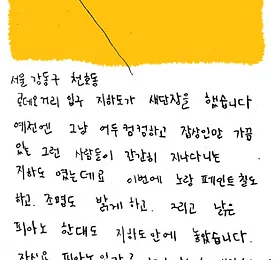 서울 강동구 천호동
로데오거리 입구 지하도가 새단장을 했습니다
예전엔 그냥 어두컴컴하고 잡상인만 가끔
있는 그런 사람들이 간간히 지나다니는
지하도 였는데요 이번에 노랑 페인트칠도
하고. 조명도 밝게 하고. 그리고 낡은
피아노 한대도 지하도안에 놓았습니다.